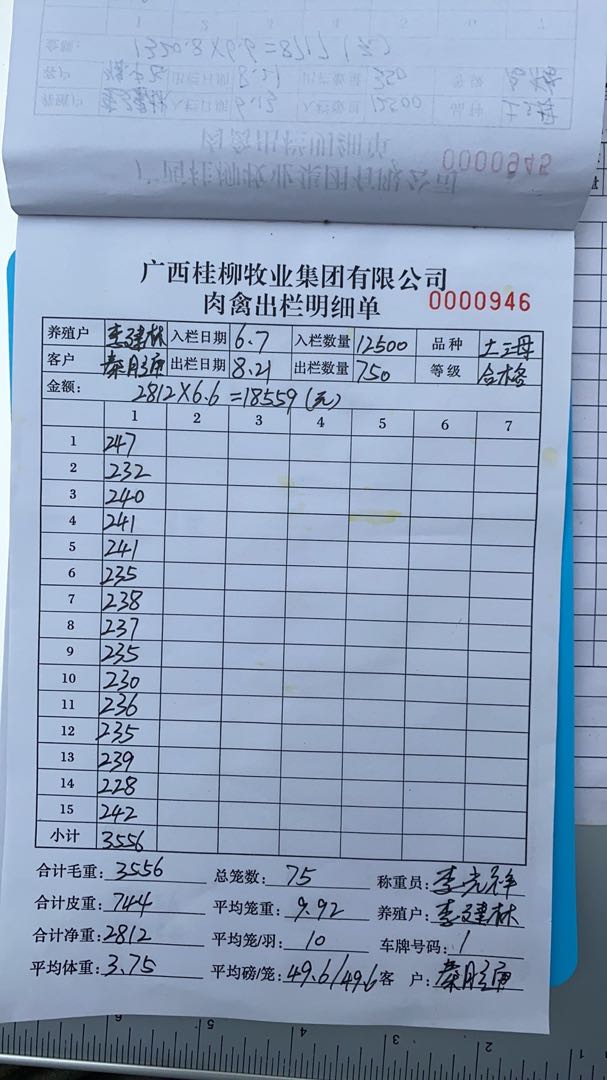 0000945
广西桂柳牧业集团有限公司
肉禽出栏明细单 0000946
养殖户 李建林 入栏日期 6.7 入栏数量 12500 品种 土二母
客户 出栏日期 8.21 出栏数量 750 等级 合格
金额: 2812×6.6=18559(元)
1 2 3 4 5 6 7
1 247
2 232
3 240
4 241
5 241
6 235
7 238
8 237
9 235
10 230
11 236
12 235
13 239
14 228
15 242
小计 3556
合计毛重: 3556 总笼数: 75 称重员: 李光祥
合计皮重: 744 平均笼重: 9.92 养殖户: 李建林
合计净重: 2812 平均笼/羽: 10 车牌号码: 1
平均体重: 3.75 平均磅/笼: 49.6/49.6 客 户: